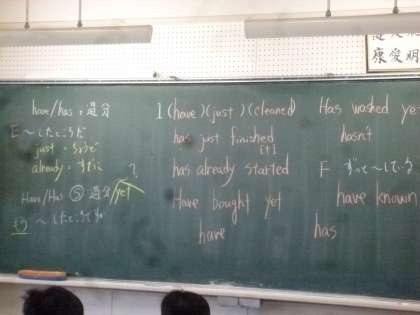 have/has + 過分
E 〜したところだ
just ちょうど
already すでに
?
Have/Has Ⓢ 過分/yet
もう 〜したところですか
1 (have)(just)(cleaned)
has just finished
[t]
has already started
Have bought yet
have
Has washed ye
hasn't
F ずっと〜している
have known
has
康愛明